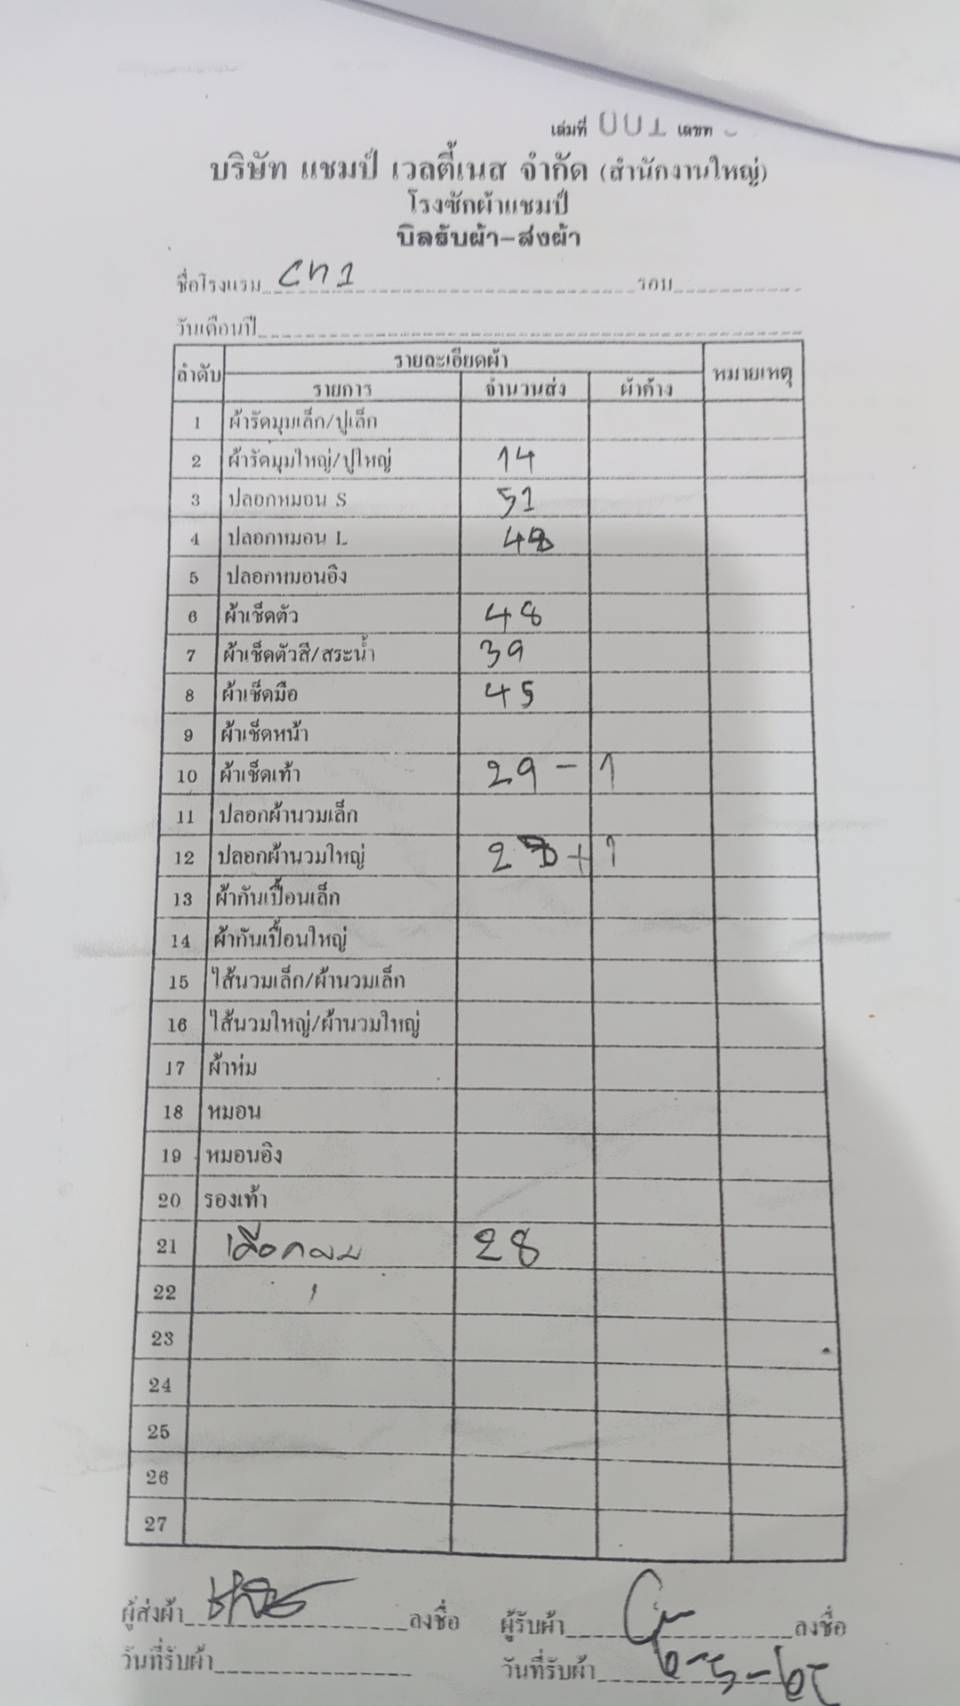 เล่มที่ 001 เลขที่
บริษัท แชมป์ เวลตี้เนส จำกัด (สำนักงานใหญ่)
โรงซักผ้าแชมป์
บิลรับผ้า-ส่งผ้า
ชื่อโรงแรม Ch1 รอบ
วันเดือนปี
ลำดับ รายละเอียดผ้า หมายเหตุ
รายการ จำนวนส่ง ผ้าค้าง
1 ผ้ารัดมุมเล็ก/ปูเล็ก
2 ผ้ารัดมุมใหญ่/ปูใหญ่ 14
3 ปลอกหมอน S 51
4 ปลอกหมอน L 48
5 ปลอกหมอนอิง
6 ผ้าเช็ดตัว 48
7 ผ้าเช็ดตัวสี/สระน้ำ 39
8 ผ้าเช็ดมือ 45
9 ผ้าเช็ดหน้า
10 ผ้าเช็ดเท้า 29 - 1
11 ปลอกผ้านวมเล็ก
12 ปลอกผ้านวมใหญ่ + 1
13 ผ้ากันเปื้อนเล็ก
14 ผ้ากันเปื้อนใหญ่
15 ไส้นวมเล็ก/ผ้านวมเล็ก
16 ไส้นวมใหญ่/ผ้านวมใหญ่
17 ผ้าห่ม
18 หมอน
19 หมอนอิง
20 รองเท้า
21 28
22
23
24
25
26
27
ผู้ส่งผ้า ลงชื่อ ผู้รับผ้า ลงชื่อ
วันที่รับผ้า วันที่รับผ้า